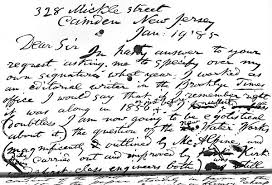 328 Mickle street
Camden New Jersey
Jan: 19 '85
Dear Sir
In answer to your
request asking me to specify over my
own signature what year I worked as
an editorial writer in the Brooklyn Times
office I would say that if I remember right
it was along in 1856 or
(doubtless) I am now going to be egotistical
about it) the question of the Water Works
magnificently outlined by McAlpine and
carries out and improved by
first class engineers